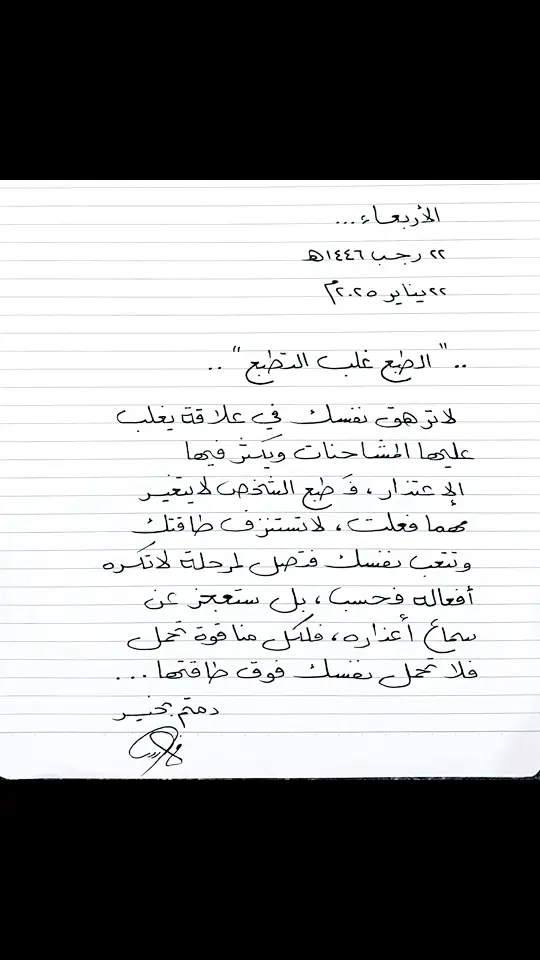 الأربعاء...
٢٢ رجب ١٤٤٦هـ
٢٢ يناير ٢٠٢٥م
.." الطبع غلب التطبع "..
لا ترهق نفسك في علاقة يغلب
عليها المشاحنات ويَكثر فيها
الإعتذار، فَطبع الشخص لا يتغير
مهما فعلت، لا تستنزف طاقتك
وتتعب نفسك فتصل لمرحلة لا تكره
أفعاله فحسب، بل ستعجز عن
سماع أعذاره، فلكل منا قوة تحمل
فلا تحمل نفسك فوق طاقتها...
دمتم بخير